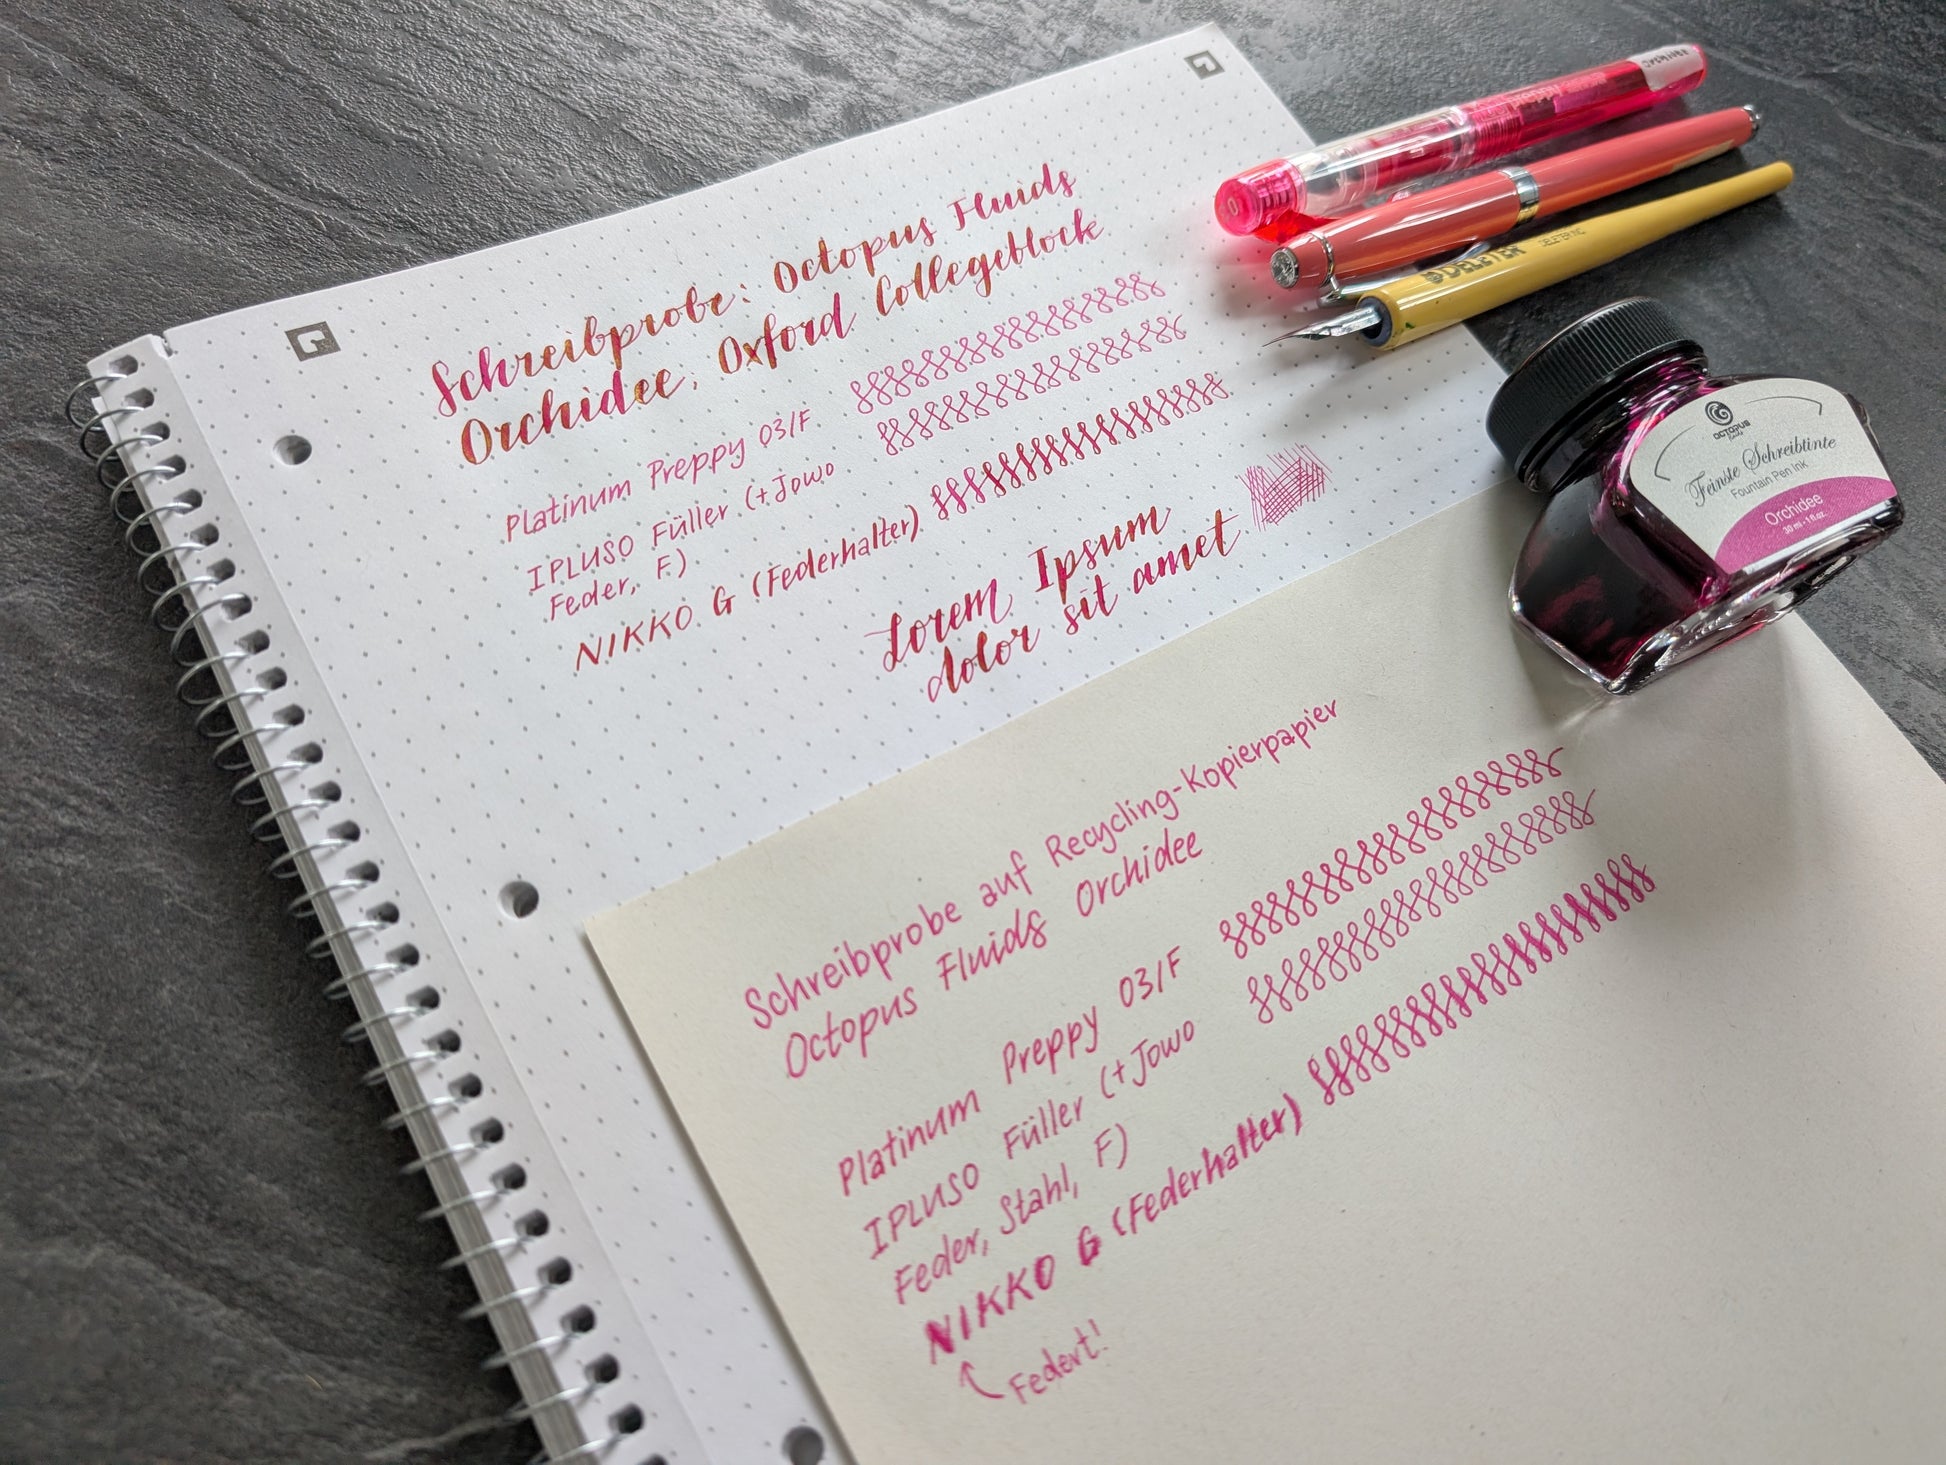 Schreibprobe: Octopus Fluids
Orchidee, Oxford Collegeblock
Platinum Preppy 03/F
IPLUSO Füller (+Jowo
Feder, F)
NIKKO G (Federhalter)
Lorem Ipsum
dolor sit amet
Schreibprobe auf Recycling-Kopierpapier
Octopus Fluids Orchidee
Platinum Preppy 03/F
IPLUSO Füller (+Jowo
Feder, Stahl, F)
NIKKO G (Federhalter)
Federt!
Orchidee
preppy
DELETER
DELETER INC
OCTOPUS
fluids
Feinste Schreibtinte
Fountain Pen Ink
Orchidee
30 ml - 1 fl.oz.